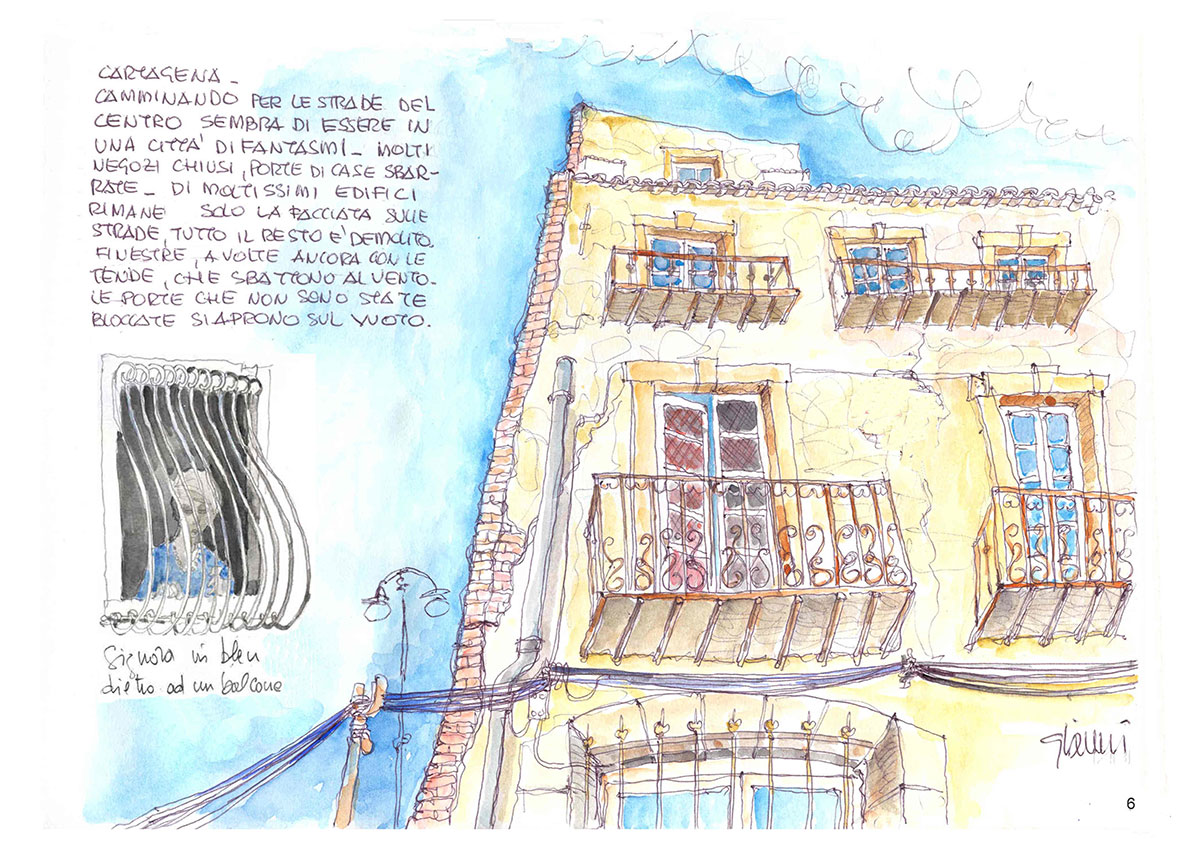 CARTAGENA -
CAMMINANDO PER LE STRADE DEL
CENTRO SEMBRA DI ESSERE IN
UNA CITTA' DI FANTASMI - MOLTI
NEGOZI CHIUSI, PORTE DI CASE SBAR-
RATE - DI MOLTISSIMI EDIFICI
RIMANE SOLO LA FACCIATA SULLE
STRADE, TUTTO IL RESTO E' DEMOLITO.
FINESTRE, A VOLTE ANCORA CON LE
TENDE, CHE SBATTONO AL VENTO-
LE PORTE CHE NON SONO STATE
BLOCCATE SI APRONO SUL VUOTO.
Signora in bleu
dietro ad un balcone
Gianni
6